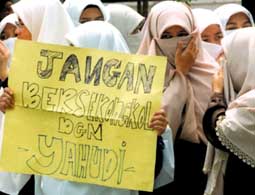 JANGAN
BERSEKONGKOL
DGN
YAHUDI